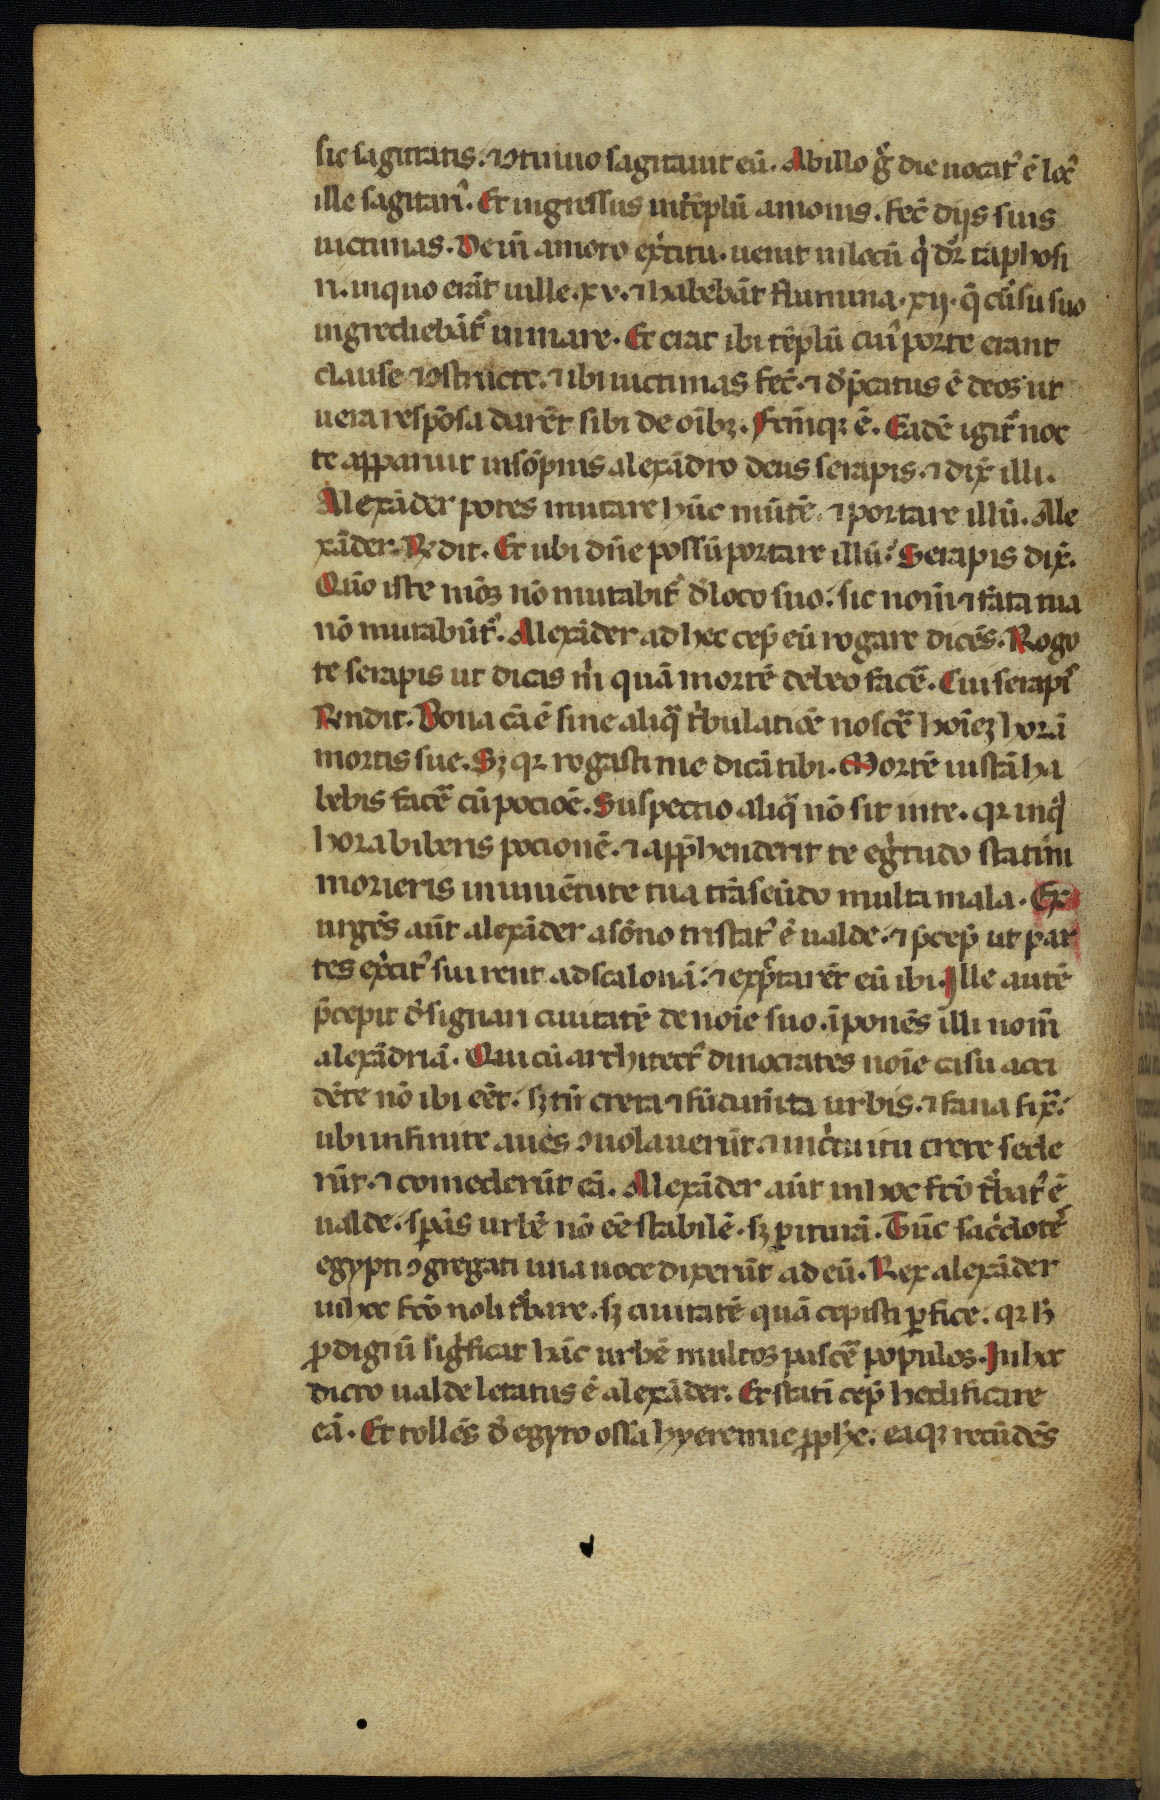 sic sagittatis. ⁊ ↄtinuo sagitauit eū. Ab illo gͦ die uocat᷑ ē loc᷒
ille sagitari᷒. Et ingressus int̄ēplū amonis. fec̄ dijs suis
uictimas. Dein̄ amoto ex̓citu. uenit in locū q̇ dr̄ taphosi
ri. in quo erāt uille .xv. ⁊ habebāt flumina .xij. q̄ cūsu suo
ingrediebāt᷑ in mare. Et erat ibi tēplū cui᷒ porte erant
clause ⁊ ↄstructe. ⁊ ibi uictimas fec̄. ⁊ dp̄catus ē deos ut
uera respōsa darēt sibi de oībꝫ. Fctm̄qꝫ ē. Eadē igit᷑ noc
te apparuit in sōpnis alexādro deus serapis. ⁊ dix̄ illi.
Alexāder potes mutare hūc mūtē. ⁊ portare illū. Ale
xāder R̄dit. Et ubi dn̄e possū portare illū. Serapis dix̄.
Quō iste mōs nō mutabit᷑ d̄ loco suo. sic nom̄ ⁊ fata tua
nō mutabūt᷑. Alexāder ad hec cep̄ eū rogare dicēs. Rogo
te serapis ut dicas m̄ quā mortē debeo facē. Cui serapi᷒
R̄ndit. Bona cā ē sine aliq̄ t̄bulatiōe noscē hoīeꝫ horā
mortis sue. Sꝫ qꝛ rogasti me dicā tibi. Mortē iustā ha
bebis facē cū pocioē. Suspectio aliq̄ nō sit in te. qꝛ in q̄
hora biberis pocionē. ⁊ app̄henderit te eg̓tudo statim
morieris in iuuētute tua trāseūdo multa mala. Ex
urgēs aūt alexāder a sōno tristat᷒ ē ualde. ⁊ p̄cep̄ ut par
tes ex̓cit᷒ sui irent ad scalonā. ⁊ exp̄ctarēt eū ibi. Ille autē
p̄cepit d̄signari ciuitatē de noīe suo. īponēs illi nom̄
alexādriā. Qui cū architect᷒ dinocrates noīe casu acci
dēte nō ibi eēt. sꝫ tn̄ creta ⁊ fūdam̄ta urbis. ⁊ fana fix̄.
ubi infinite aues ↄuolauerūt. ⁊ in c̓cuitu crete sede
rūt. ⁊ comederūt eā. Alexāder aūt in hoc fcō t̄bat᷒ ē
ualde. sp̄ās urbē nō eē stabilē. sꝫ ꝑiturā. Tūc sac̓dotes
egypti ↄgregati una uoce dixerūt ad eū. Rex alexāder
in hoc fcō noli t̄bare. sꝫ ciuitatē quā cepisti ꝑfice. qꝛ h̄
ꝓdigiū sig̓ficat hāc urbē multos pascē populos. In hoc
dicto ualde letatus ē alexāder. Et statī cep̄ hedificare
eā. Et tollēs d̄ egyto ossa hyeremie ꝓphe. eaqꝫ recūdēs